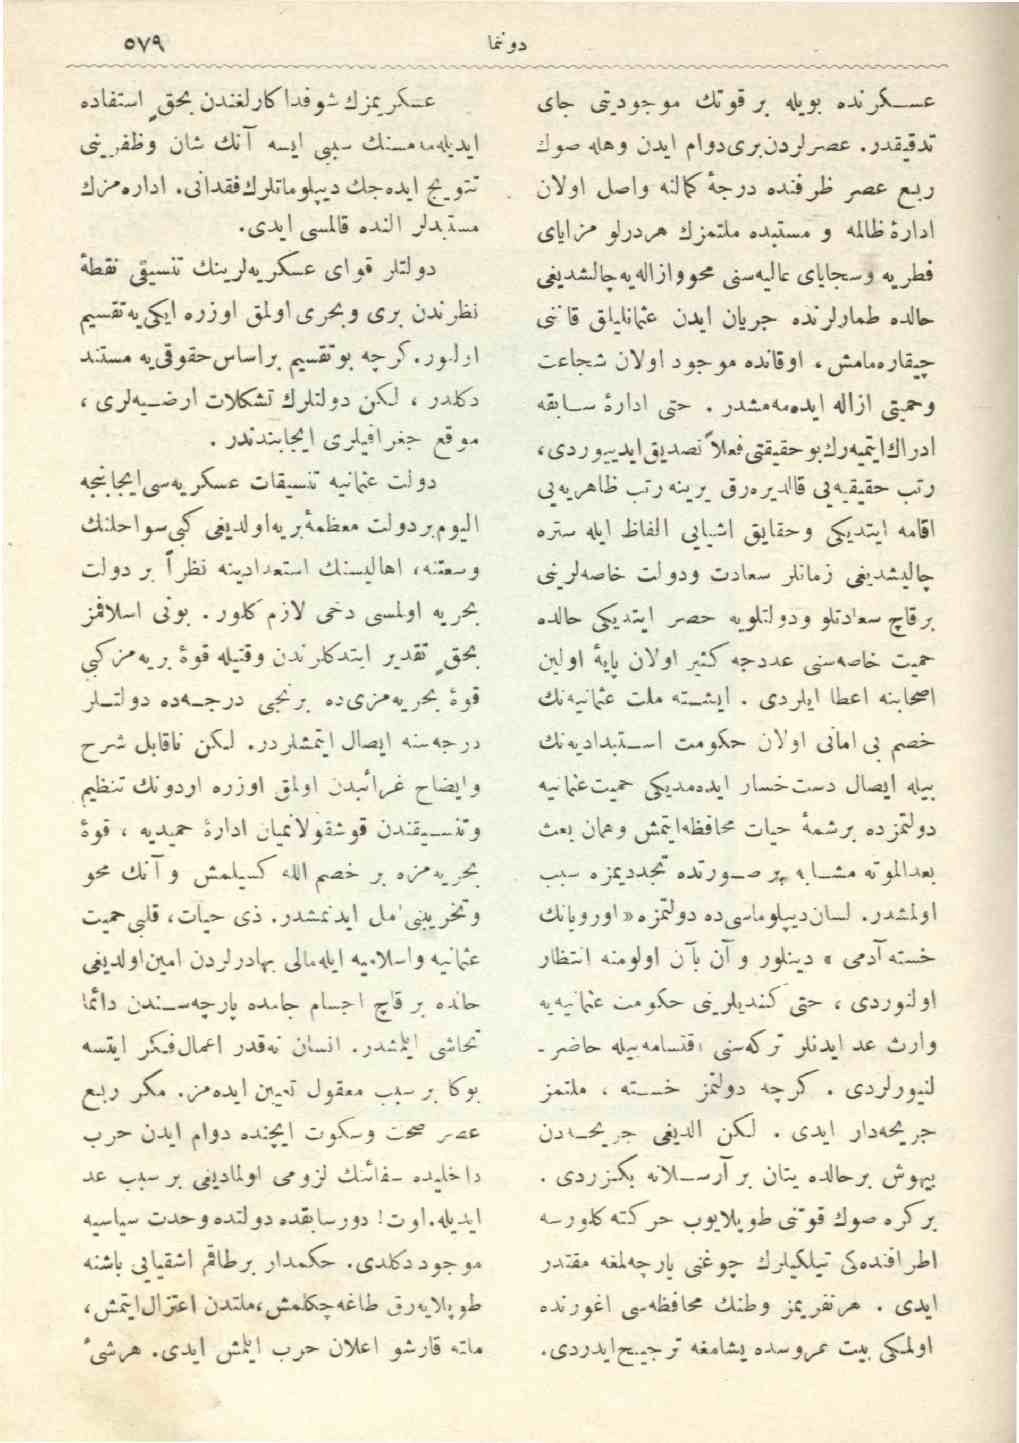 دوننما
٥٧٩
عسكرنده بويله بر قوتك موجوديتی جای
تدقيقدر. عصرلردن‌بری‌دوام ايدن وهله صوك
ربع عصر ظرفنده درجۀ كمالنه واصل اولان
ادارۀ ظالمه و مستبده ملتمزك هردرلو مزايای
فطريه وسجايای عاليه‌سنی محووازاله‌يه‌چالشديغی
حالده طمارلرنده جريان ايدن عثمانليلق قاننی
چيقاره‌مامش، اوقانده موجود اولان شجاعت
وحميتی ازاله ايده‌مه‌مشدر. حتی ادارۀ سابقه
ادراك‌ايتميه‌رك‌بوحقيقتی‌فعلاً تصديق‌ايدييوردی،
رتب حقيقيه‌يی قالديره‌رق يرينه رتب ظاهريه‌يی
اقامه ايتديكی وحقايق اشيايی الفاظ ايله ستره
چاليشديغی زمانلر سعادت ودولت خاصه‌لرينی
برقاچ سعادتلو ودولتلويه حصر ايتديكی حالده
حميت خاصه‌سنی عددجه كثير اولان پايۀ اولين
اصحابنه اعطا ايلردی. ايشته ملت عثمانيه‌نك
خصم بی امانی اولان حكومت استبداديه‌نك
بيله ايصال دست‌خسار ايده‌مديكی حميت‌عثمانيه
دولتمزده برشمۀ حيات محافظه‌ايتمش وهمان بعث
بعدالموته مشابه بر صورتده تجدديمزه سبب
اولمشدر. لسان‌ديپلوماسی‌ده دولتمزه «اوروپانك
خسته آدمی» دينلور و آن بآن اولومنه انتظار
اولنوردی، حتی كنديلرينی حكومت عثمانيه‌يه
وارث عد ايدنلر تركه‌سنی اقتسامه‌بيله حاضر-
لنيورلردی. كرچه دولتمز خسته، ملتمز
جريحه‌دار ايدی. لكن الديغی جريحه‌دن
بيهوش برحالده يتان بر آرسلانه بكزردی.
بركره صوك قوتنی طوپلايوب حركته كلورسه
اطرافنده‌كی تيلكيلرك چوغنی پارچه‌لمغه مقتدر
ايدی. هرنفريمز وطنك محافظه‌سی اغورنده
اولمكی بيت عروسده يشامغه ترجيح‌ايدردی.
عسكريمزك شوفداكارلغندن بحقٍ استفاده
ايديله‌مه‌مسنك سببی ايسه آنك شان وظفرينی
تتويج ايده‌جك ديپلوماتلرك‌فقدانی. اداره‌مزك
مستبدلر النده قالمسی ايدی.
دولتلر قوای عسكريه‌لرينك تنسيقی نقطۀ
نظرندن بری وبحری اولمق اوزره ايكی‌يه‌تقسيم
اولنور. كرچه بوتقسيم براساس‌حقوقی‌يه مستند
دكلدر، لكن دولتلرك تشكلات ارضيه‌لری،
موقع جغرافيلری ايجابندندر.
دولت عثمانيه تنسيقات عسكريه‌سی‌ايجابنجه
اليوم‌بردولت معظمۀ‌بريه‌اولديغی كبی‌سواحلنك
وسعتنه، اهاليسنك استعدادينه نظراً بر دولت
بحريه اولمسی دخی لازم كلور. بونی اسلافمز
بحقٍ تقدير ايتدكلرندن وقتيله قوۀ بريه‌مزكبی
قوۀ بحريه‌مزی‌ده برنجی درجه‌ده دولتلر
درجه‌سنه ايصال ايتمشلردر. لكن ناقابل شرح
وايضاح غرائبدن اولمق اوزره اردونك تنظيم
وتنسيقندن قوشقولانميان ادارۀ حميديه، قوۀ
بحريه‌مزه بر خصم الد كسيلمش و آنك محو
وتخريبنی امل ايدنمشدر. ذی حيات، قلبی حميت
عثمانيه واسلاميه ايله‌مالی بهادرلردن امين‌اولديغی
حالده بر قاچ اجسام جامده پارچه‌سندن دائما
تحاشی ايلمشدر. انسان نه‌قدر اعمال‌فكر ايتسه
بوكا بر سبب معقول تعيين ايده‌مز. مكر ربع
عصر صمت وسكوت ايچنده دوام ايدن حرب
داخليده سفائنك لزومی اولماديغی بر سبب عد
ايديله. اوت! دورسابقده دولتده وحدت سياسيه
موجود دكلدی. حكمدار برطاقم اشقيايی باشنه
طوپلايه‌رق طاغه‌چكلمش، ملتدن اعتزال‌ايتمش،
ملته قارشو اعلان حرب ايلمش ايدی. هرشیء